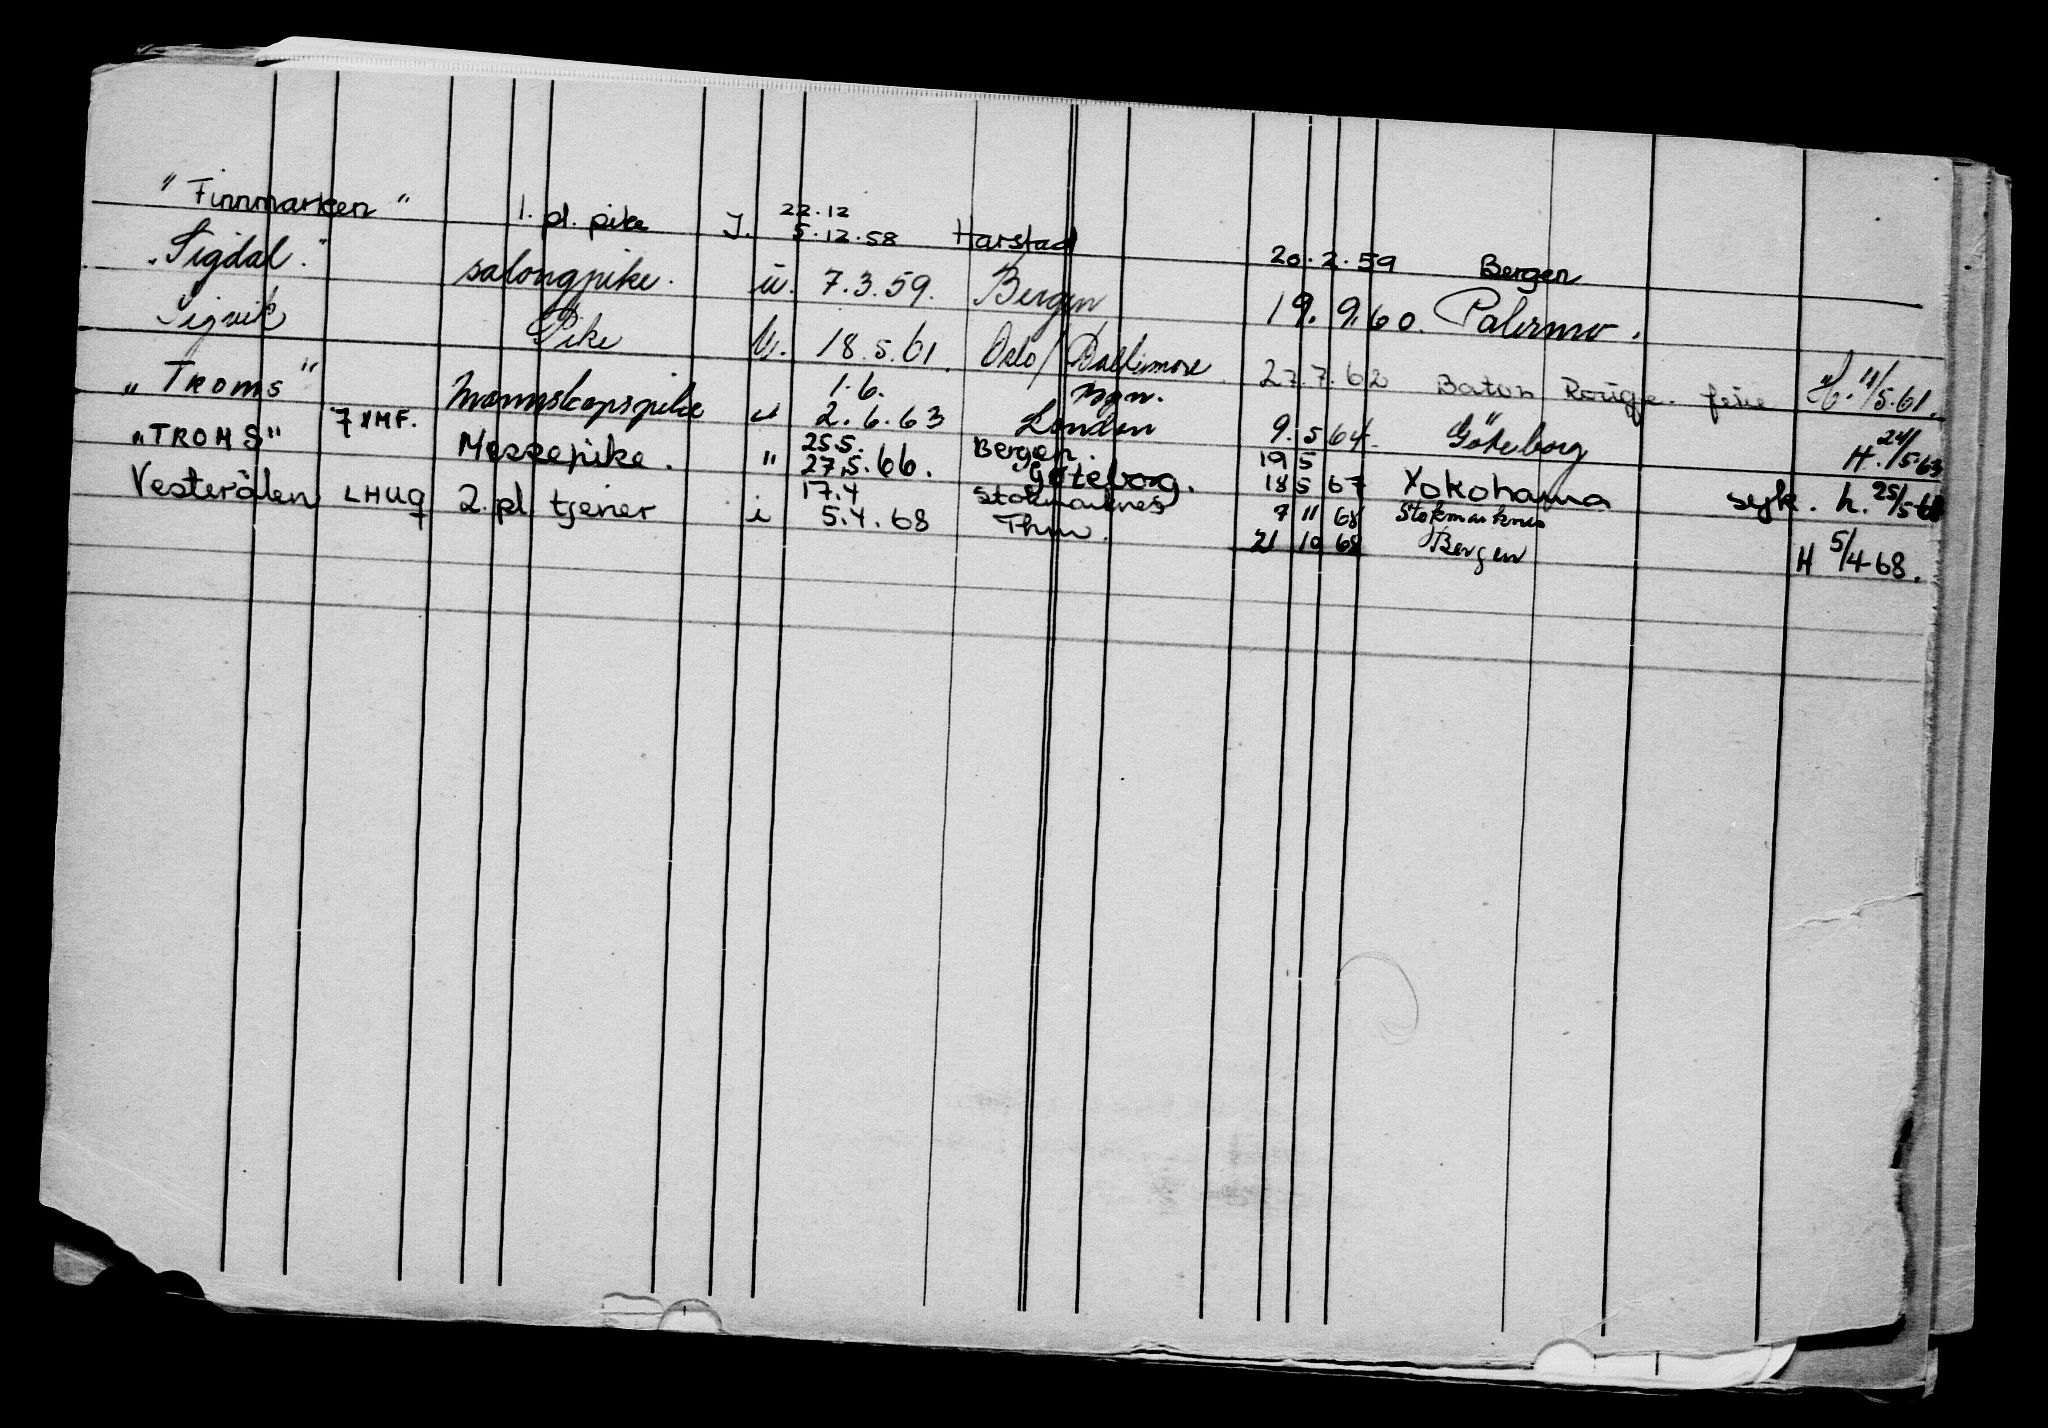 "Finnmarken" 1. pl. pike J. 22.12 5.12.58 Harstad 20.2.59 Bergen
"Sigdal." salongpike. u. 7.3.59. Bergen 19.9.60. Palermo.
Sigvik Pike U. 18.5.61. Oslo/Baltimore 27.7.62 Baton Rouge ferie H. 11/5.61.
"Troms" Mannskapspike u 1.6. 2.6.63 London 9.5.64. Göteborg H. 24/5.63
"TROMS" Messepike. " 25.5. 27.5.66. Bergen. Göteborg. 19 5 18 5 67 Yokohama syk. h. 25/5-66
Vesterålen LHUQ 2. pl tjener i 17.4 5.4.68 Stokmarknes Thm. 7 11 68 Stokmarknes 21 10 68 Bergen H 5/4-68.